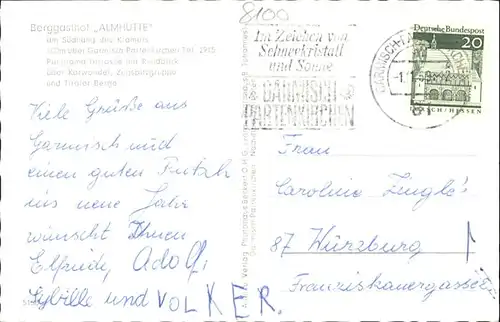 8100
Berggasthof „ALMHÜTTE"
am Südhang des Kramers
über Garmisch-Partenkirchen Tel. 2915
Panorama-Terrasse mit Rundblick
über Karwendel, Zugspitzgruppe
und Tiroler Berge
Viele Grüße aus
Garmisch und
einen guten Rutsch
ins neue Jahr
wünscht Ihnen
Elfriede, Adolf,
Sybille und VOLKER.
Im Zeichen von
Schneekristall
und Sonne
GARMISCH
PARTENKIRCHEN
Deutsche Bundespost
20
LORSCH/HESSEN
Frau
Caroline
87 Würzburg
Franziskanergasse